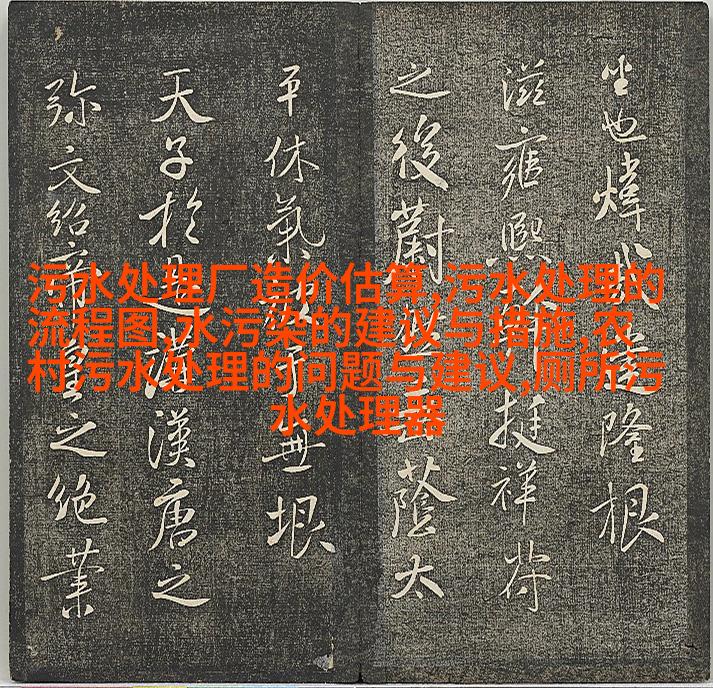 污水处理厂造价估算,污水处理的
流程图,水污染的建议与措施,农
村污水处理的问题与建议,厕所污
水处理器
也煒隆根
滋雍熙挺祥符
之後蔚蔭太
平休氣無垠
天子於漢唐之
弥文紹帝皇之絶業